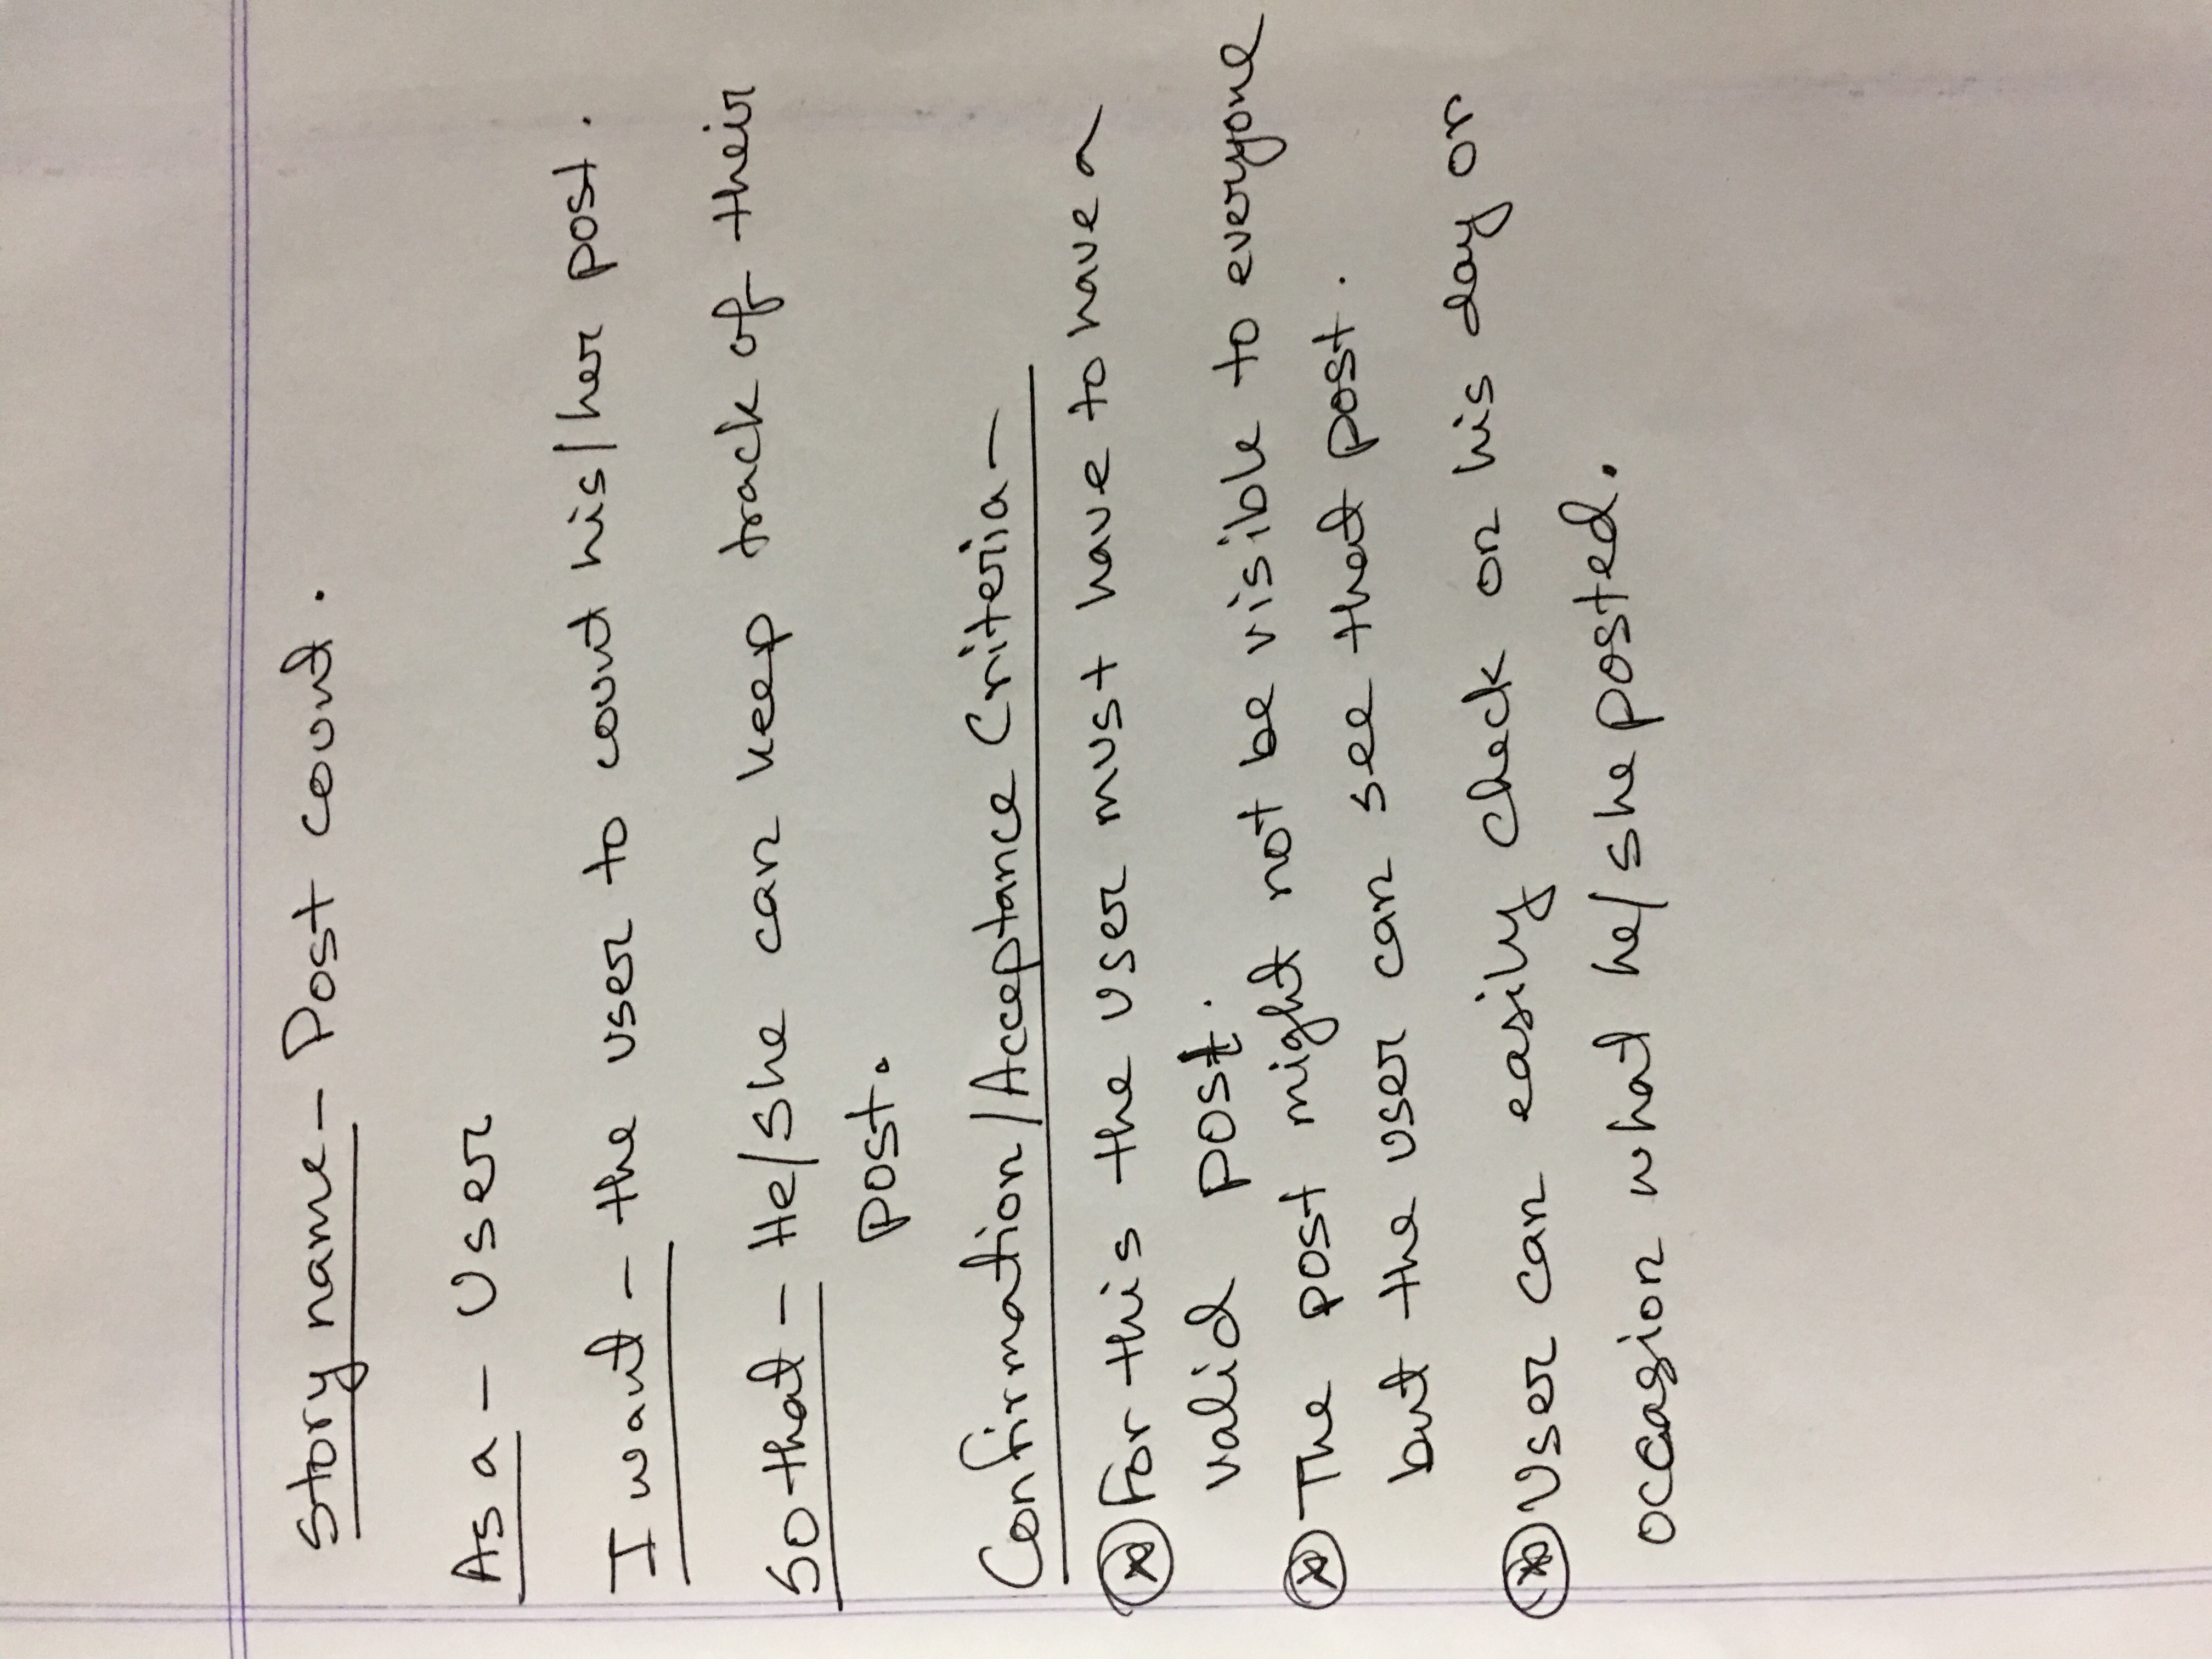 Story name - Post count.
As a - User
I want - the user to count his/her post.
So that - He/She can keep track of their
post.
Confirmation/Acceptance Criteria -
For this the user must have to have a
valid post.
The post might not be visible to everyone
but the user can see that post.
User can easily check on his day or
occasion what he/she posted.